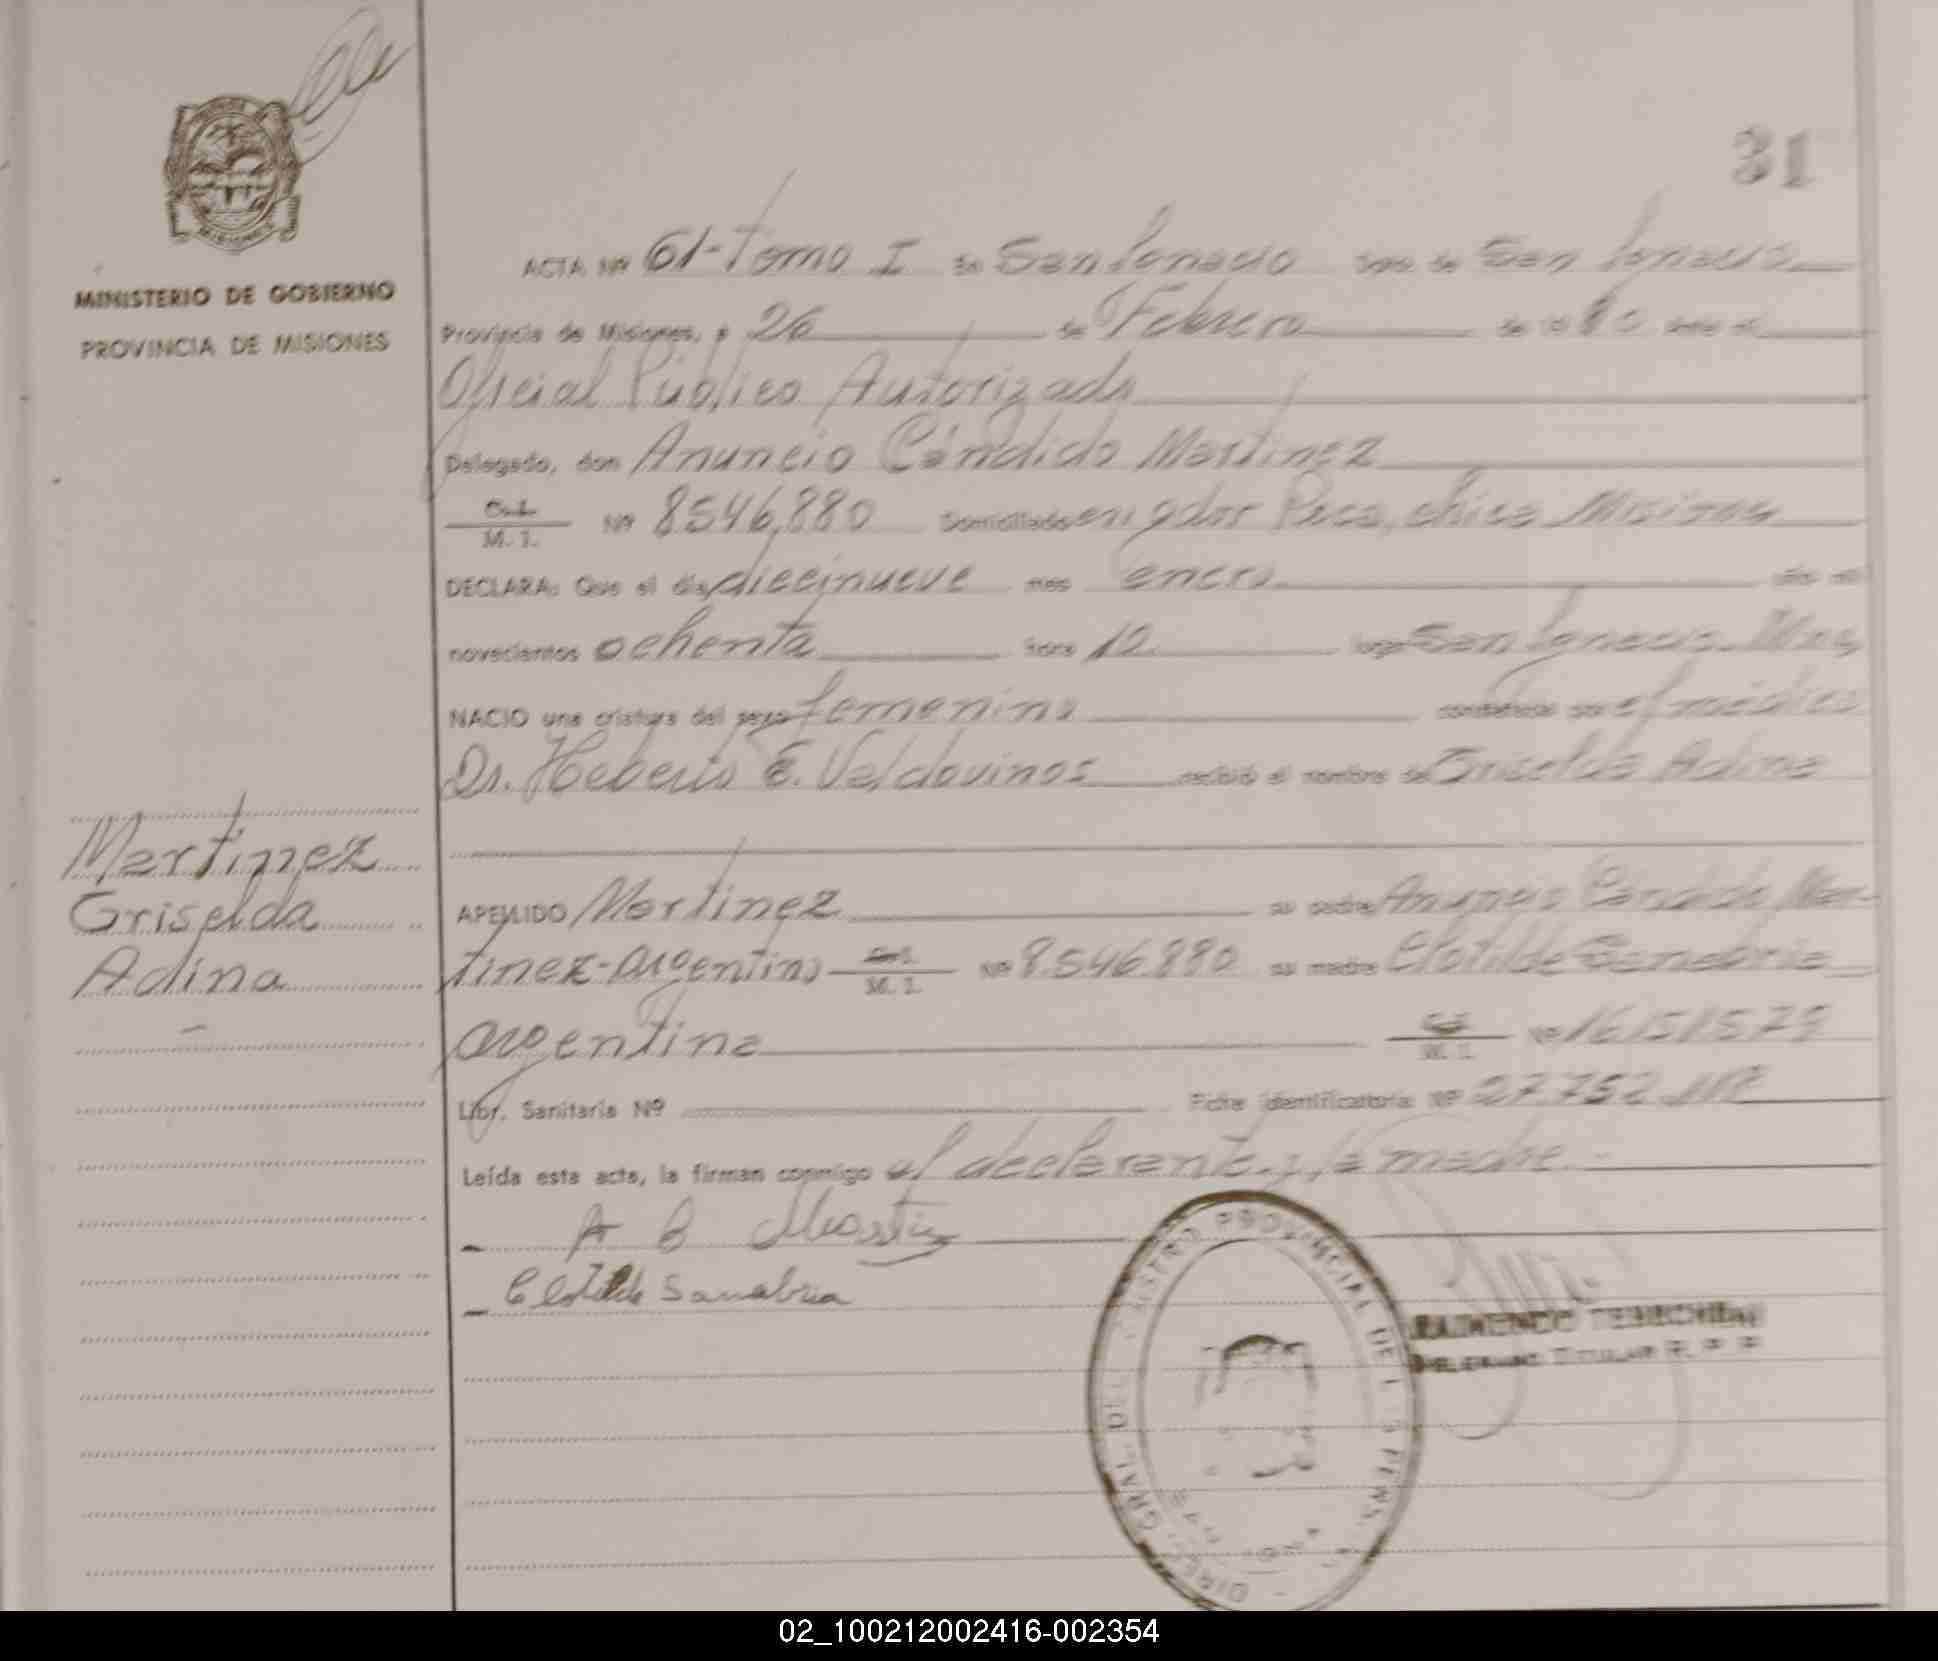 31
MINISTERIO DE GOBIERNO
PROVINCIA DE MISIONES
ACTA Nº 61-Tomo I En San Ignacio Dpto de San Ignacio
Provincia de Misiones, a 26 de Febrero de 1980 ante el
Oficial Público Autorizado
Delegado, don Anuncio Cándido Martinez
M. I. Nº 8546,880 Domiciliado en gdor Roca, chica Misiones
DECLARA: Que el día diecinueve mes enero año mil
novecientos ochenta hora 12 lugar San Ignacio Mnes
NACIO una criatura del sexo femenino constatada por el médico
Dr. Heberto E. Valdovinos recibió el nombre de Griselda Adina
Martinez
Griselda
Adina
APELLIDO Martinez su padre Anuncio Cándido Mar-
tinez-argentino M. I. Nº 8.546.880 su madre Clotilde Sanabria
argentina M. I. Nº 16.151.579
Libr. Sanitaria Nº Ficha identificatoria Nº 27.752
Leída esta acta, la firman conmigo el declarante y la madre.-
A C Martinez
Clotilde Sanabria
DIREC. GRAL. DEL REGISTRO PROVINCIAL DE LAS PERS.
DELEGADO TITULAR R. P. P.
02_100212002416-002354